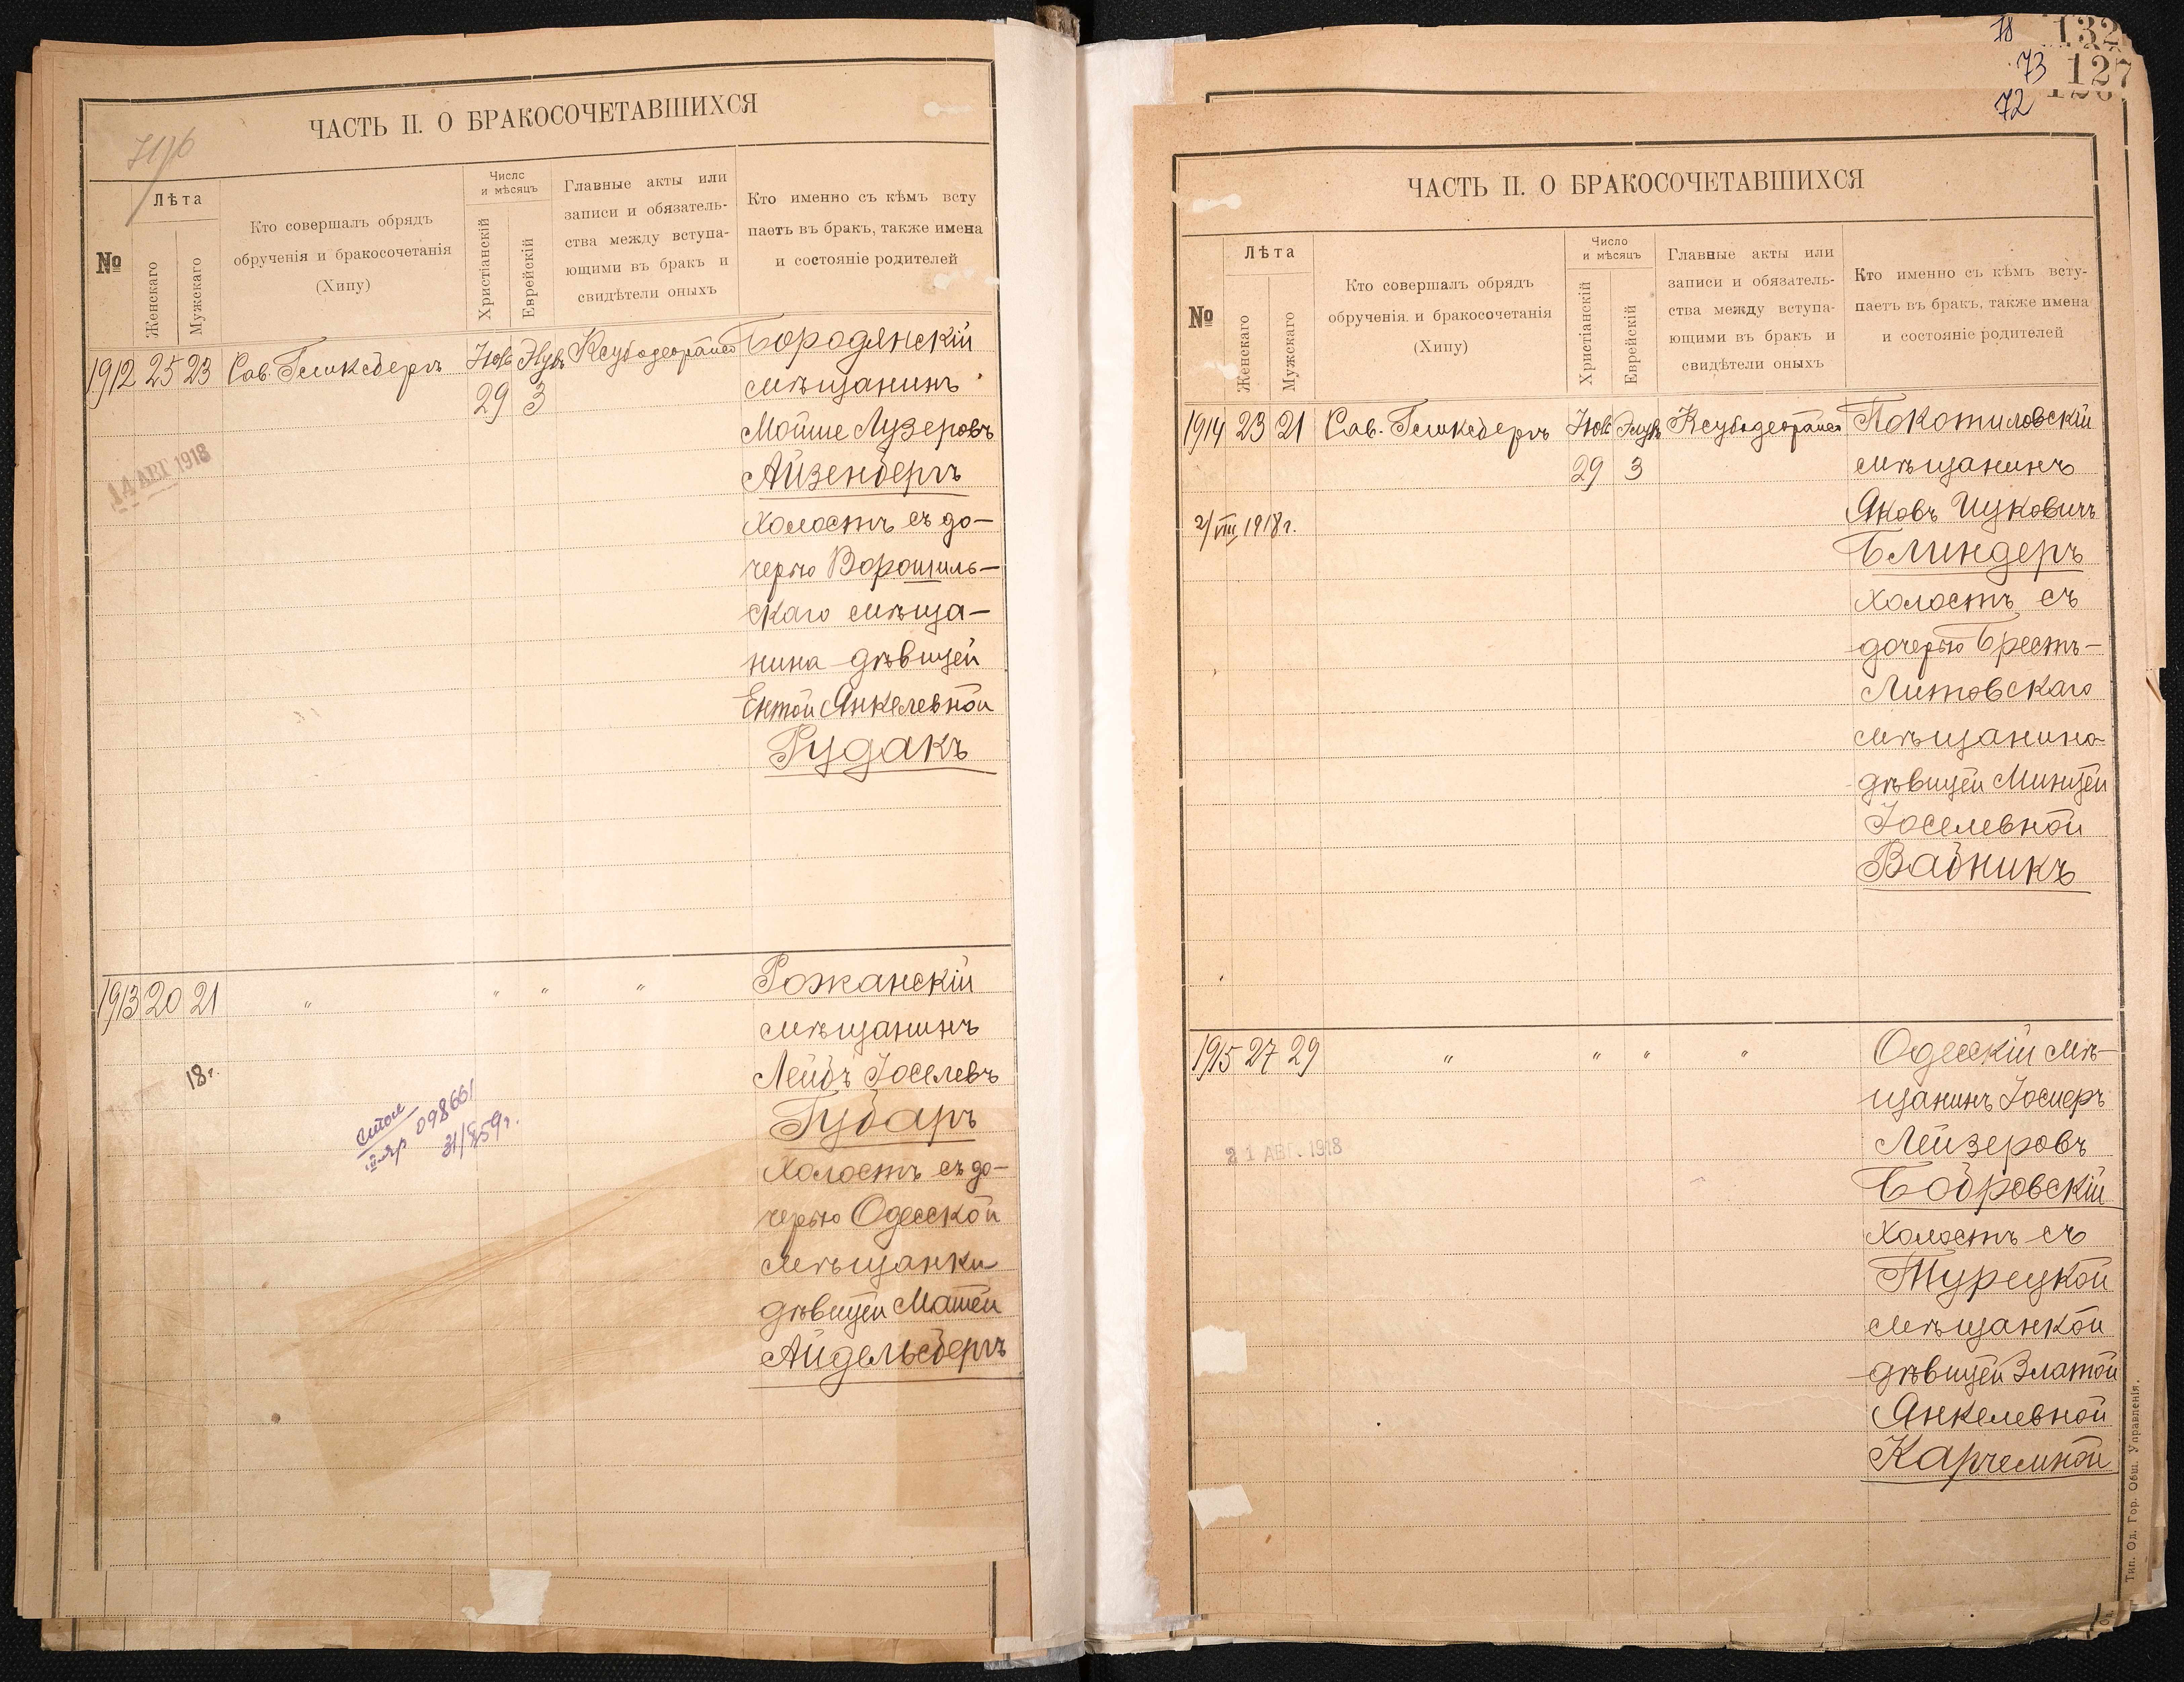 ЧАСТЬ II. О БРАКОСОЧЕТАВШИХСЯ
№
Лѣта
Женскаго
Мужскаго
Кто совершалъ обрядъ
обрученія и бракосочетанія
(Хипу)
Число
и мѣсяцъ
Христіанскій
Еврейскій
Главные акты или
записи и обязатель-
ства между вступа-
ющими въ бракъ и
свидѣтели оныхъ
Кто именно съ кѣмъ всту
паетъ въ бракъ, также имена
и состояніе родителей
1912 25 23
29 3
14 АВГ 1918
Бородянскій
мѣщанинъ
Мойше Лузеровъ
Айзенбергъ
холостъ съ до-
черью Ворошиль-
скаго мѣща-
нина дѣвицей
Ентой Янкелевной
Рудакъ
1913 20 21 " " " "
18г.
098661
Рожанскій
мѣщанинъ
Лейбъ Іоселевъ
Губаръ
холостъ съ до-
черью Одесской
мѣщанки
дѣвицей Матей
Айдельсбергъ
78 132
73 127
72
ЧАСТЬ II. О БРАКОСОЧЕТАВШИХСЯ
№
Лѣта
Женскаго
Мужскаго
Кто совершалъ обрядъ
обрученія и бракосочетанія
(Хипу)
Число
и мѣсяцъ
Христіанскій
Еврейскій
Главные акты или
записи и обязатель-
ства между вступа-
ющими въ бракъ и
свидѣтели оныхъ
Кто именно съ кѣмъ всту-
паетъ въ бракъ, также имена
и состояніе родителей
1914 23 21
29 3
2/VIII 1918 г.
Покотиловскій
мѣщанинъ
Яковъ Ицковичъ
Блиндеръ
холостъ съ
дочерью Брестъ-
Литовскаго
мѣщанина
дѣвицей Минцей
Іоселевной
Вайникъ
1915 27 29 " " " "
21 АВГ. 1918
Одесскій мѣ-
щанинъ Іосифъ
Лейзеровъ
Бобровскій
холостъ съ
Турецкой
мѣщанкой
дѣвицей Златой
Янкелевной
Карчемной
Тип. Од. Гор. Общ. Управленія.